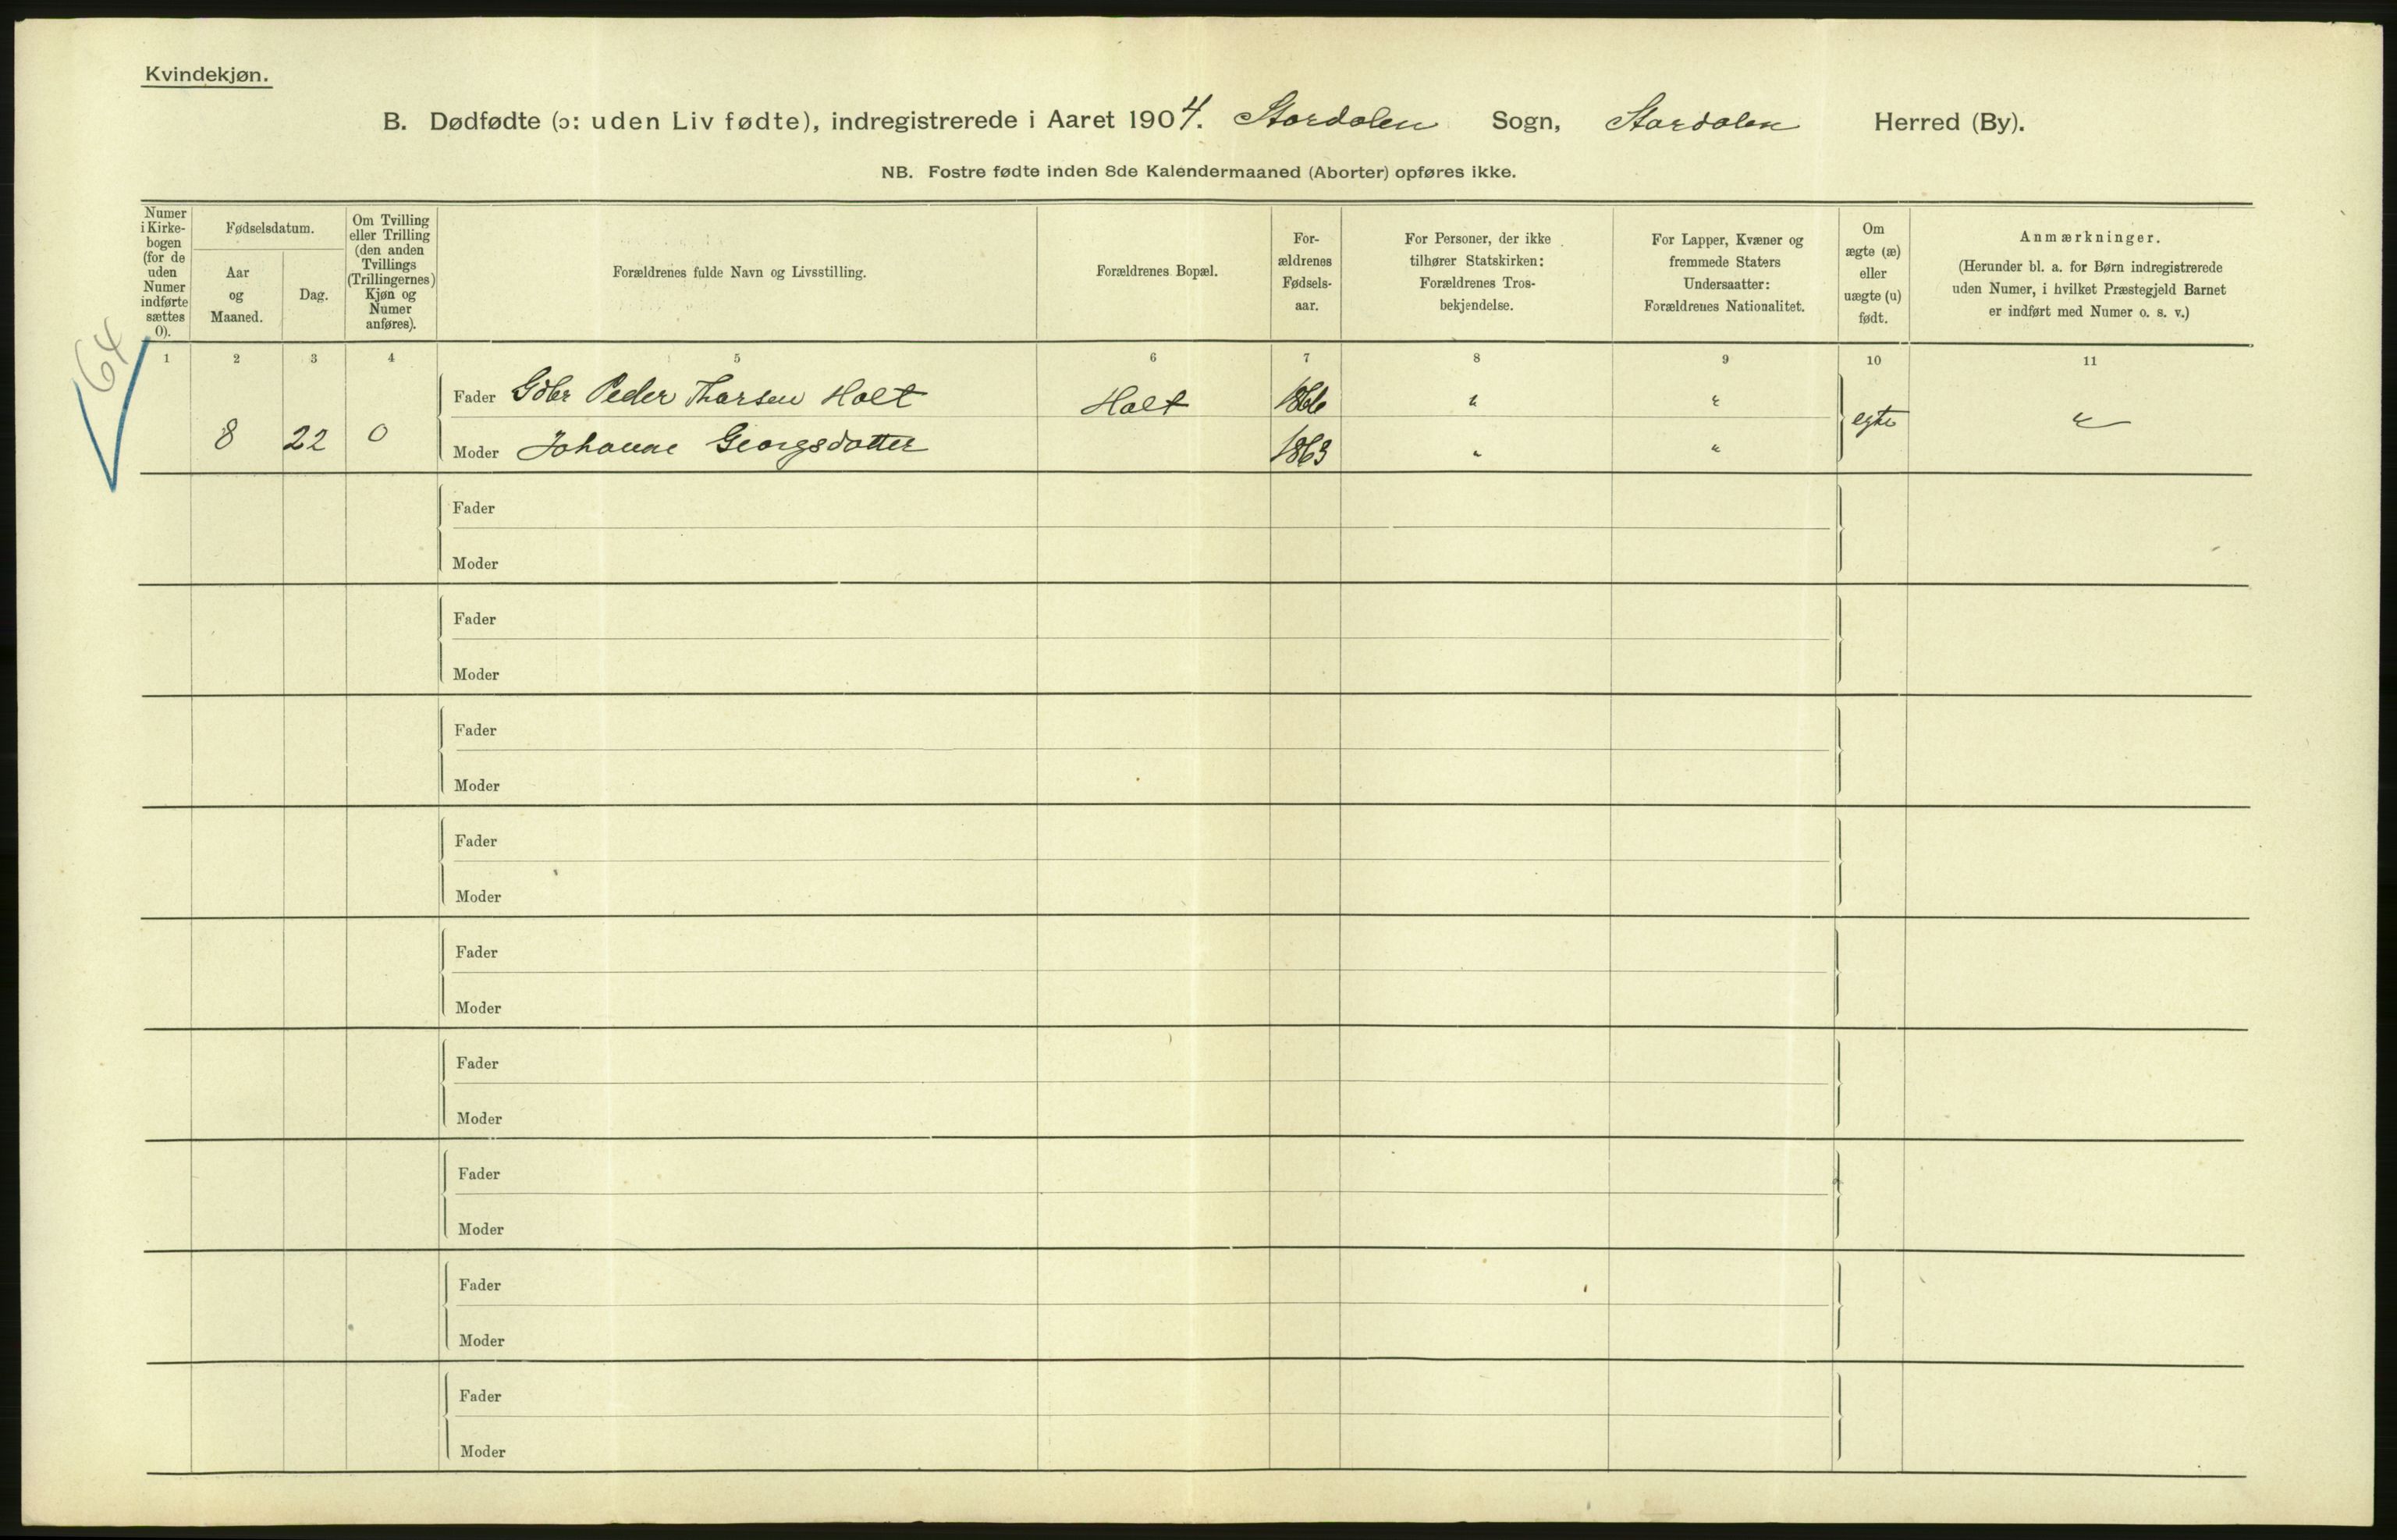 Kvindekjøn.
B. Dødfødte (ɔ: uden Liv fødte), indregistrerede i Aaret 1904. Stordalen Sogn, Stordalen Herred (By).
NB. Fostre fødte inden 8de Kalendermaaned (Aborter) opføres ikke.
Numer
i Kirke-
bogen
(for de
uden
Numer
indførte
sættes
0).
Fødselsdatum.
Aar
og
Maaned.
Dag.
Om Tvilling
eller Trilling
(den anden
Tvillings
(Trillingernes)
Kjøn og
Numer
anføres).
Forældrenes fulde Navn og Livsstilling.
Forældrenes Bopæl.
For-
ældrenes
Fødsels-
aar.
For Personer, der ikke
tilhører Statskirken:
Forældrenes Tros-
bekjendelse.
For Lapper, Kvæner og
fremmede Staters
Undersaatter:
Forældrenes Nationalitet.
Om
ægte (æ)
eller
uægte (u)
født.
Anmærkninger.
(Herunder bl. a. for Børn indregistrerede
uden Numer, i hvilket Præstegjeld Barnet
er indført med Numer o. s. v.)
64
1 2 3 4 5 6 7 8 9 10 11
Fader Gdbr Peder Thorsen Holt Holt 1866 " "
8 22 0 egte "
Moder Johanne Georgsdatter 1863 " "
Fader
Moder
Fader
Moder
Fader
Moder
Fader
Moder
Fader
Moder
Fader
Moder
Fader
Moder
Fader
Moder
Fader
Moder